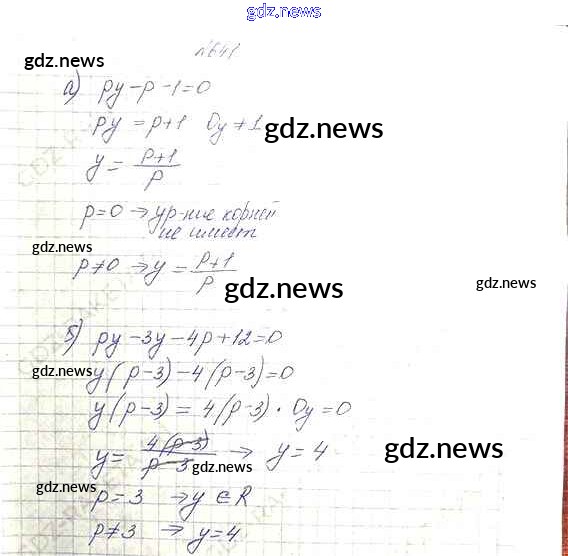 gdz.news
№641
gdz.news
а) py-p-1=0
py = p+1 0y≠1
gdz.news
y = p+1/p
p=0 → ур-ние корней
не имеет
gdz.news
p≠0 → y = p+1/p
gdz.news
gdz.news
б) py-3y-4p+12=0
gdz.news
y(p-3)-4(p-3)=0
y(p-3) = 4(p-3) · 0y=0
y = 4(p-3)/p-3 → y=4
gdz.news
gdz.news
gdz.news
p=3 → y ∈ R
p≠3 → y=4